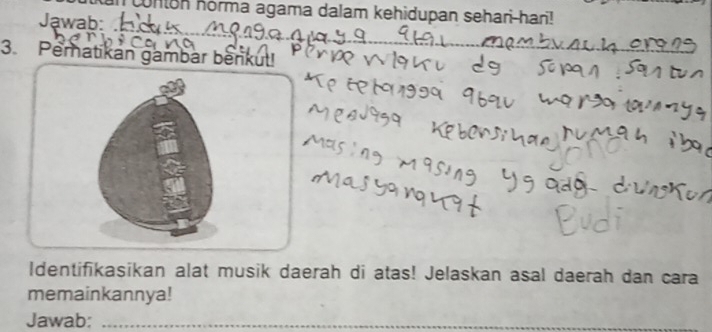 contoh norma agama dalam kehidupan sehari-hari!
Jawab: tidak menganiaya atau membunuh orang
berbicara dan
3. Perhatikan gambar berikut!
Perperilaku dg sopan santun
Ke tetangga atau warga lainnya
Menjaga kebersihan rumah ibad
Masing masing yg ada dilingkun
Masyarakat
Budi
Identifikasikan alat musik daerah di atas! Jelaskan asal daerah dan cara
memainkannya!
Jawab: